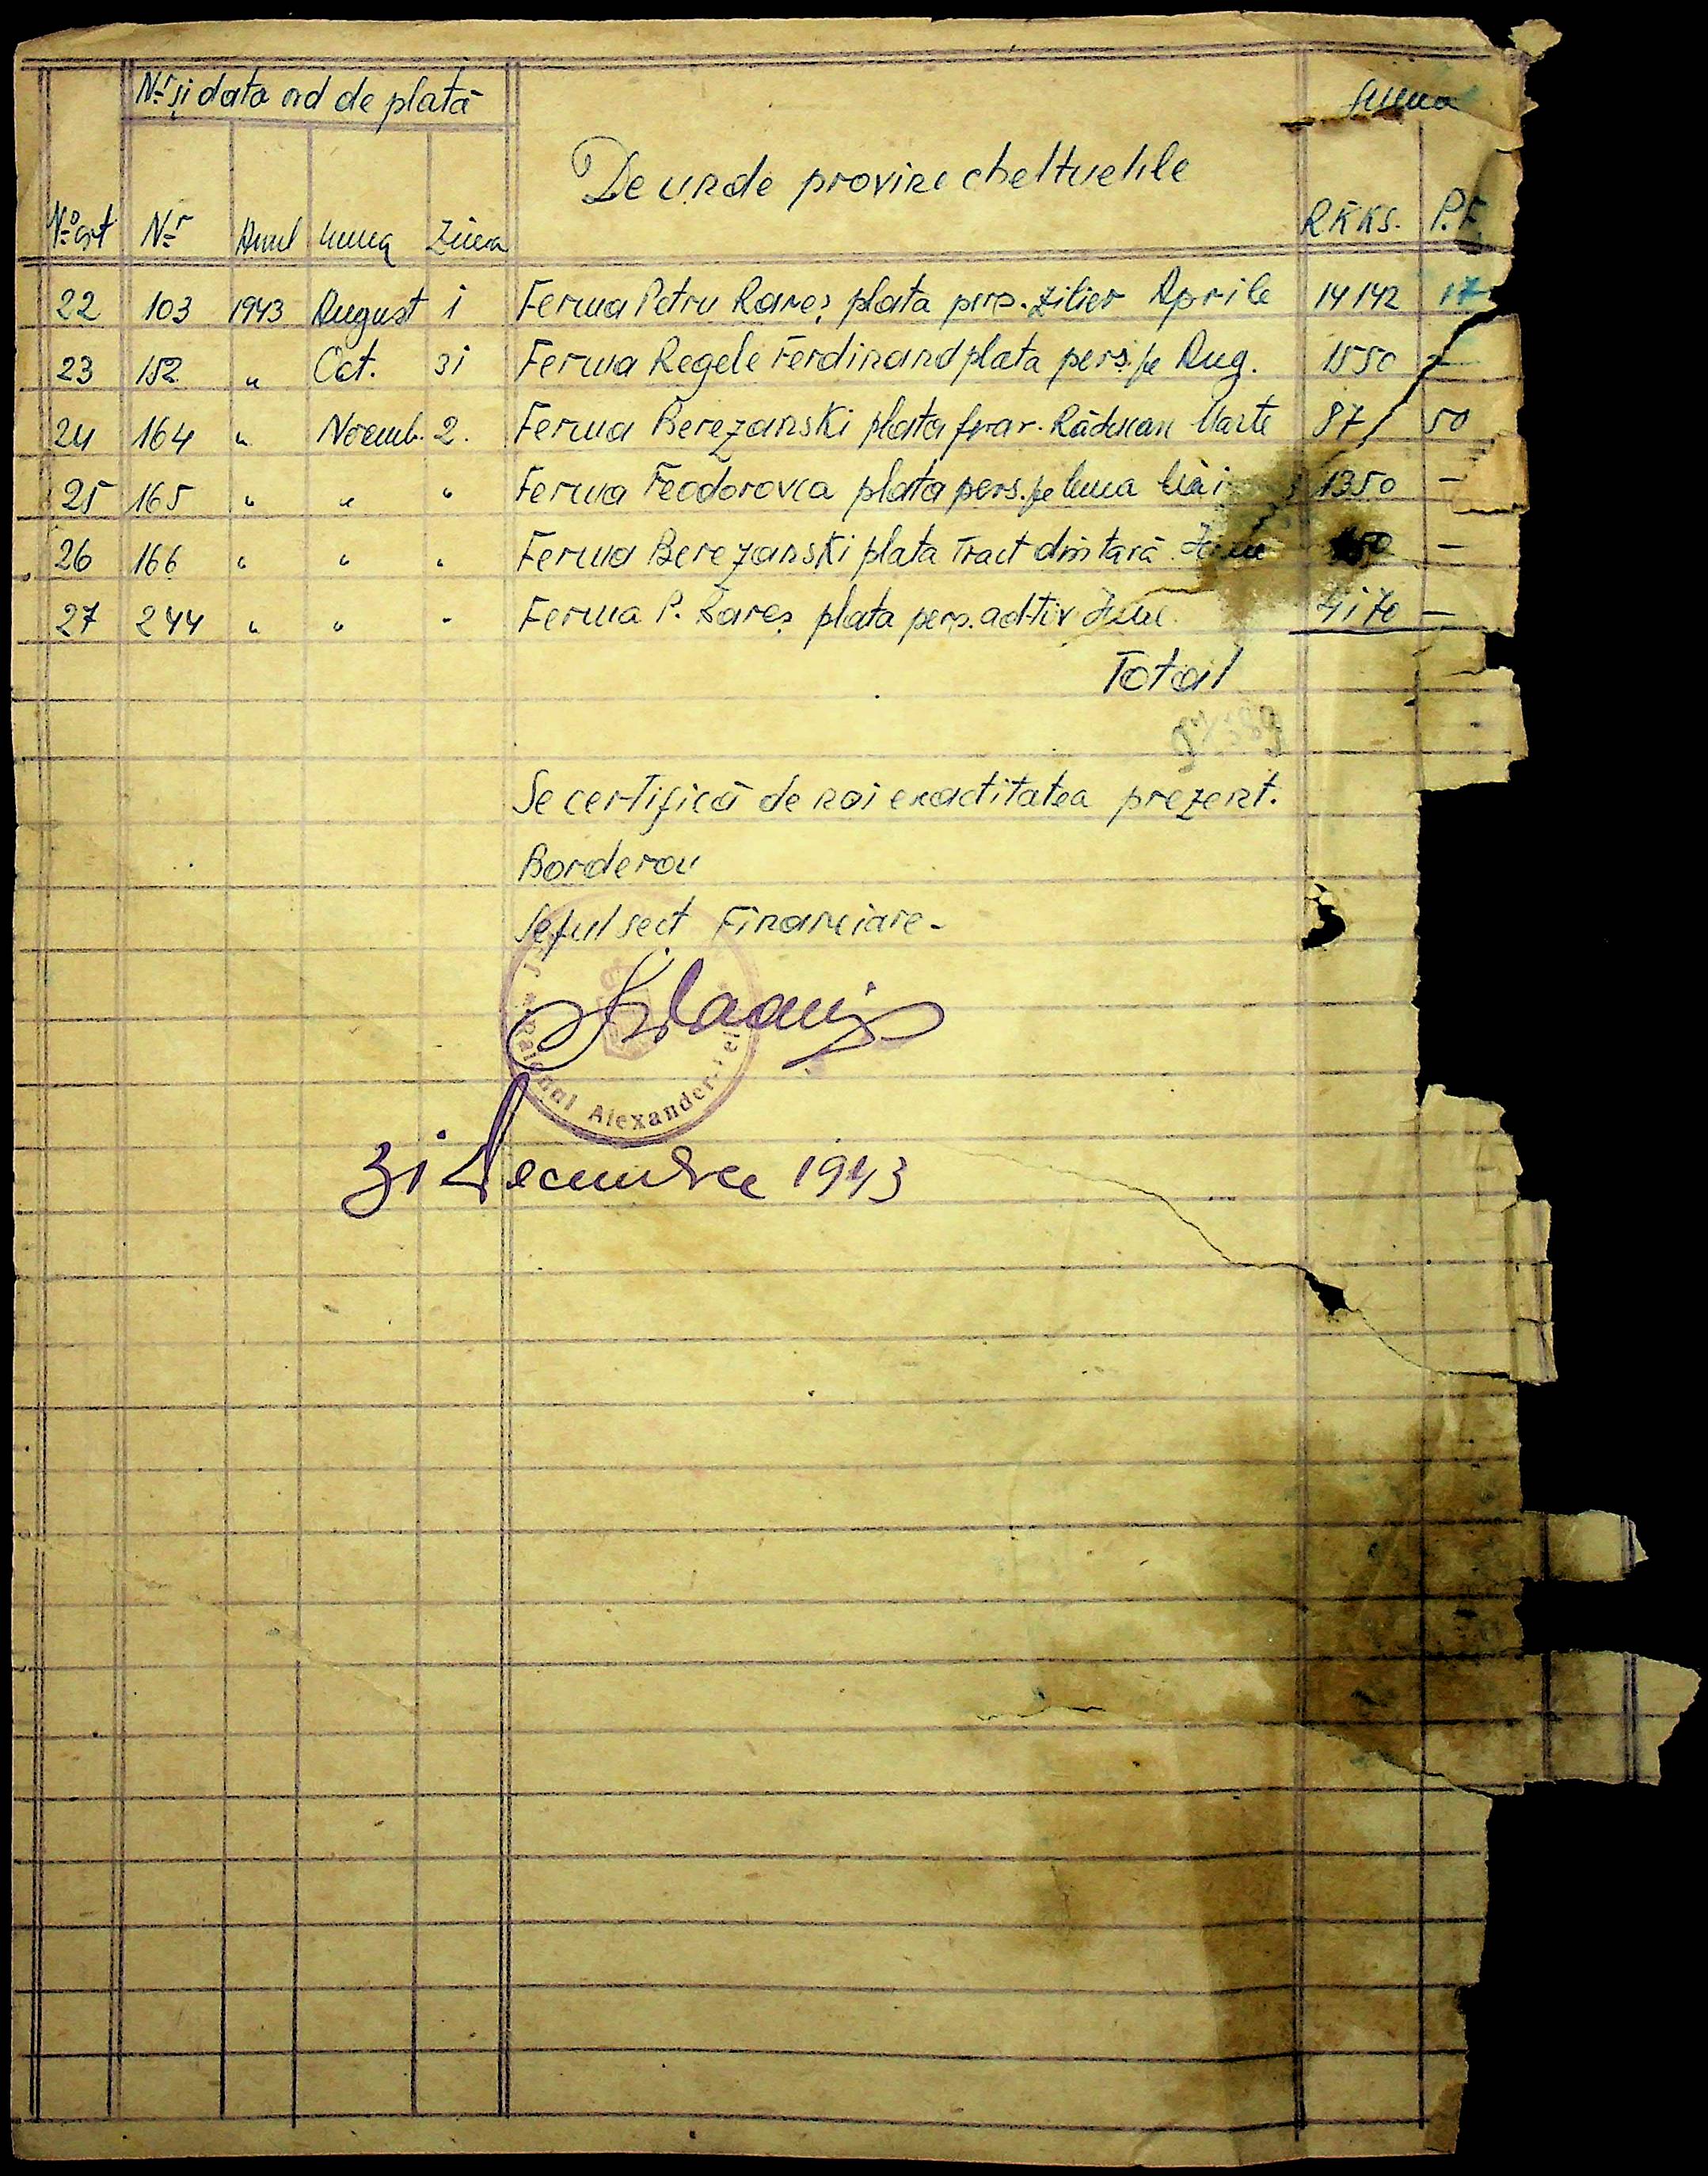 Nr și data ord de plată
Suma
De unde provine cheltuelile
No crt Nr Anul Luna Ziua RKKS. P.F.
22 103 1943 August 1 Ferma Petru Rareș plata pers. zilier Aprile 14142 17
23 152 " Oct. 31 Ferma Regele Ferdinand plata pers. pe Aug. 1550 —
24 164 " Noemb. 2. Ferma Berezanski plata Răducan Marte 87 50
25 165 " " " Ferma Feodorovca plata pers. pe luna Mai 1350 —
26 166 " " " Ferma Berezanski plata Tract din țară —
27 244 " " " Ferma P. Rareș plata pers. ad-tiv June 4170 —
Total
Se certifică de noi exactitatea prezent.
Borderou
Șeful sect Financiare-
Alexander
31 Decembrie 1943